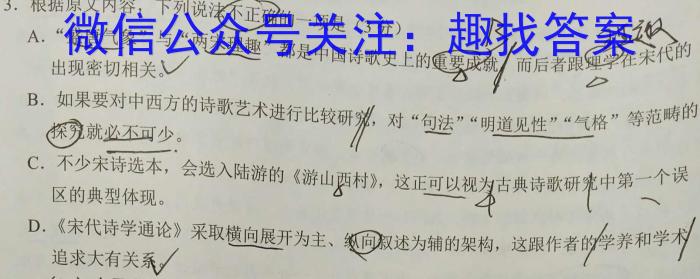 3. 根据原文内容，下列说法不正确的一项是（3分）
微信公众号关注：趣找答案
A. “气象”与“两宋理趣”都是中国诗歌史上的重要成就，而后者跟理学在宋代的
出现密切相关。
B. 如果要对中西方的诗歌艺术进行比较研究，对“句法”“明道见性”“气格”等范畴的
探究就必不可少。
C. 不少宋诗选本，会选入陆游的《游山西村》，这正可以视为古典诗歌研究中第一个误
区的典型体现。
D. 《宋代诗学通论》采取横向展开为主、纵向叙述为辅的架构，这跟作者的学养和学术
追求大有关系。